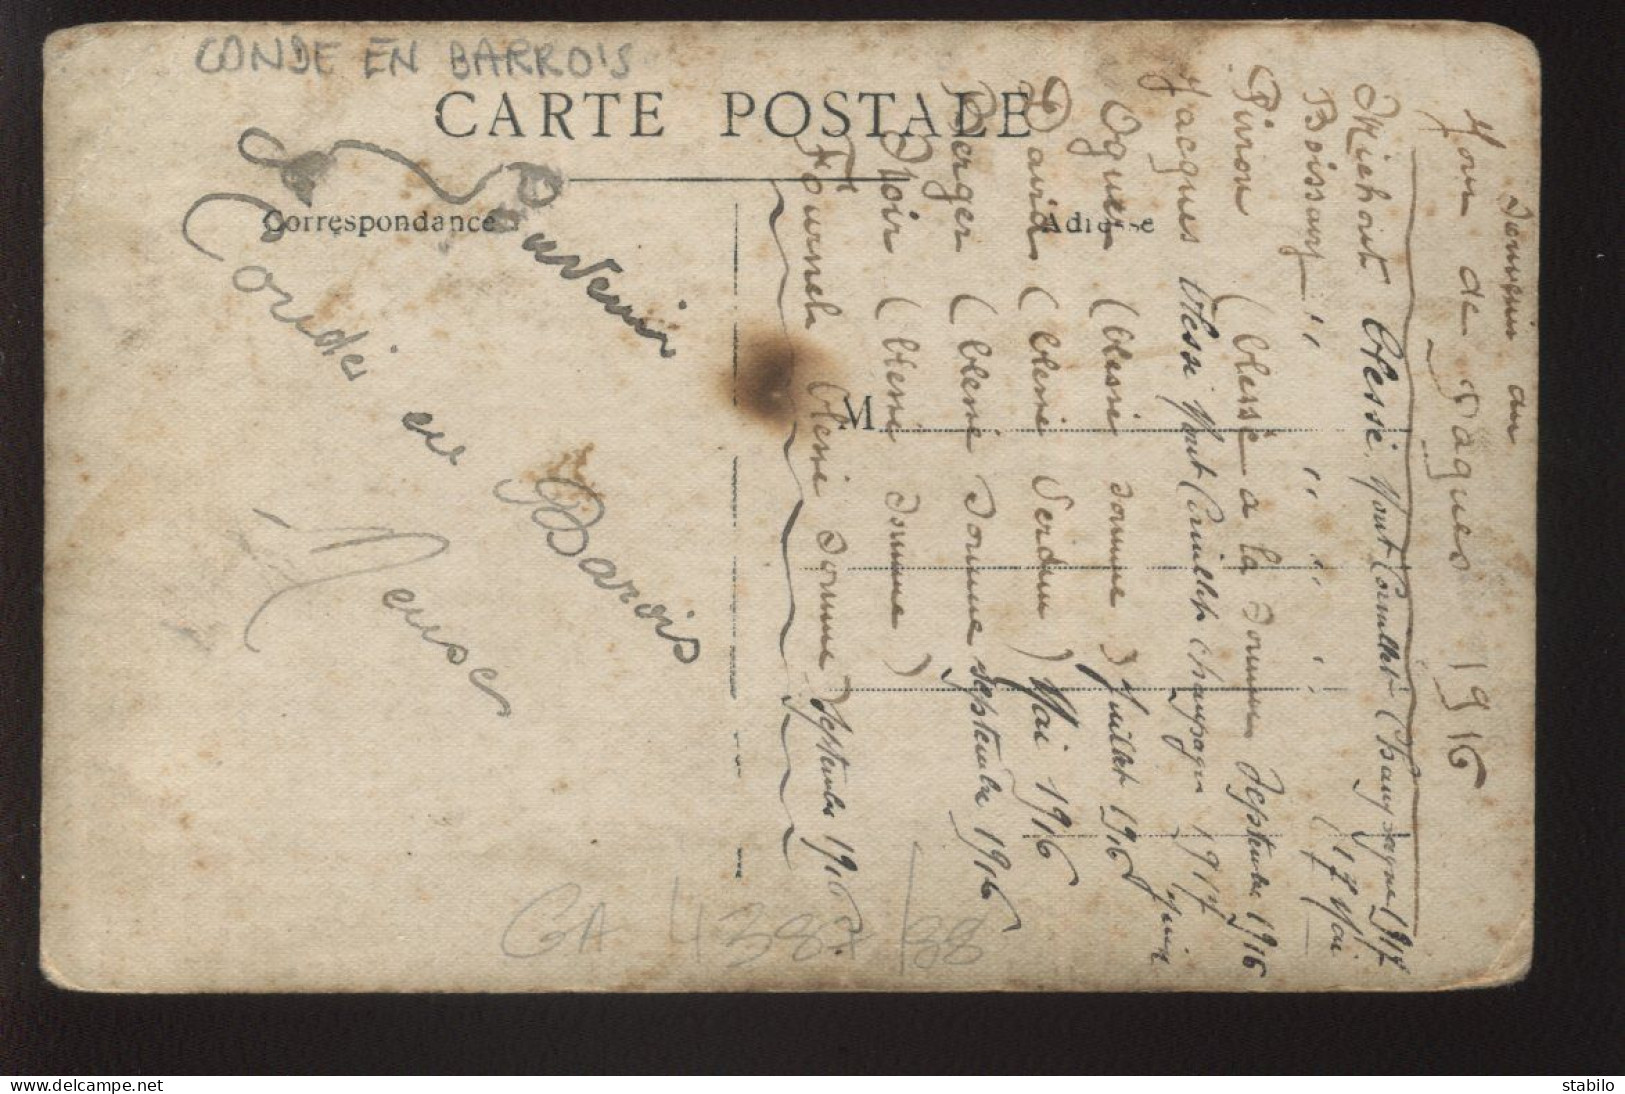 CONDE EN BARROIS
CARTE POSTALE
Correspondance
Adresse
M
Souvenir
Condé en Barois
Meuse
Souvenir du
Jour de Paques 1916
Michout blessé Mont Cornillet Champagne 1917
Boissary " " " " 17 Mai
Pinon (blessé a la Somme Septembre 1916
Jacques blessé Mont Cornillet Champagne 1917
Oguer (blessé Somme) Juillet 1916 Juin
David (blessé Verdun) Mai 1916
Berger (blessé Somme septembre 1916
Noir (blessé Somme)
Fournels blessé Somme) Septembre 1916
GA 4387/88
stabilo